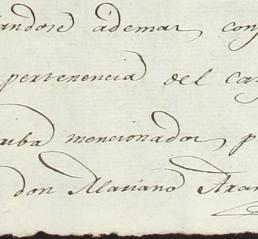 andose ademas, conf
pertenencia del Ca
riba mencionados, p
don Mariano Aran